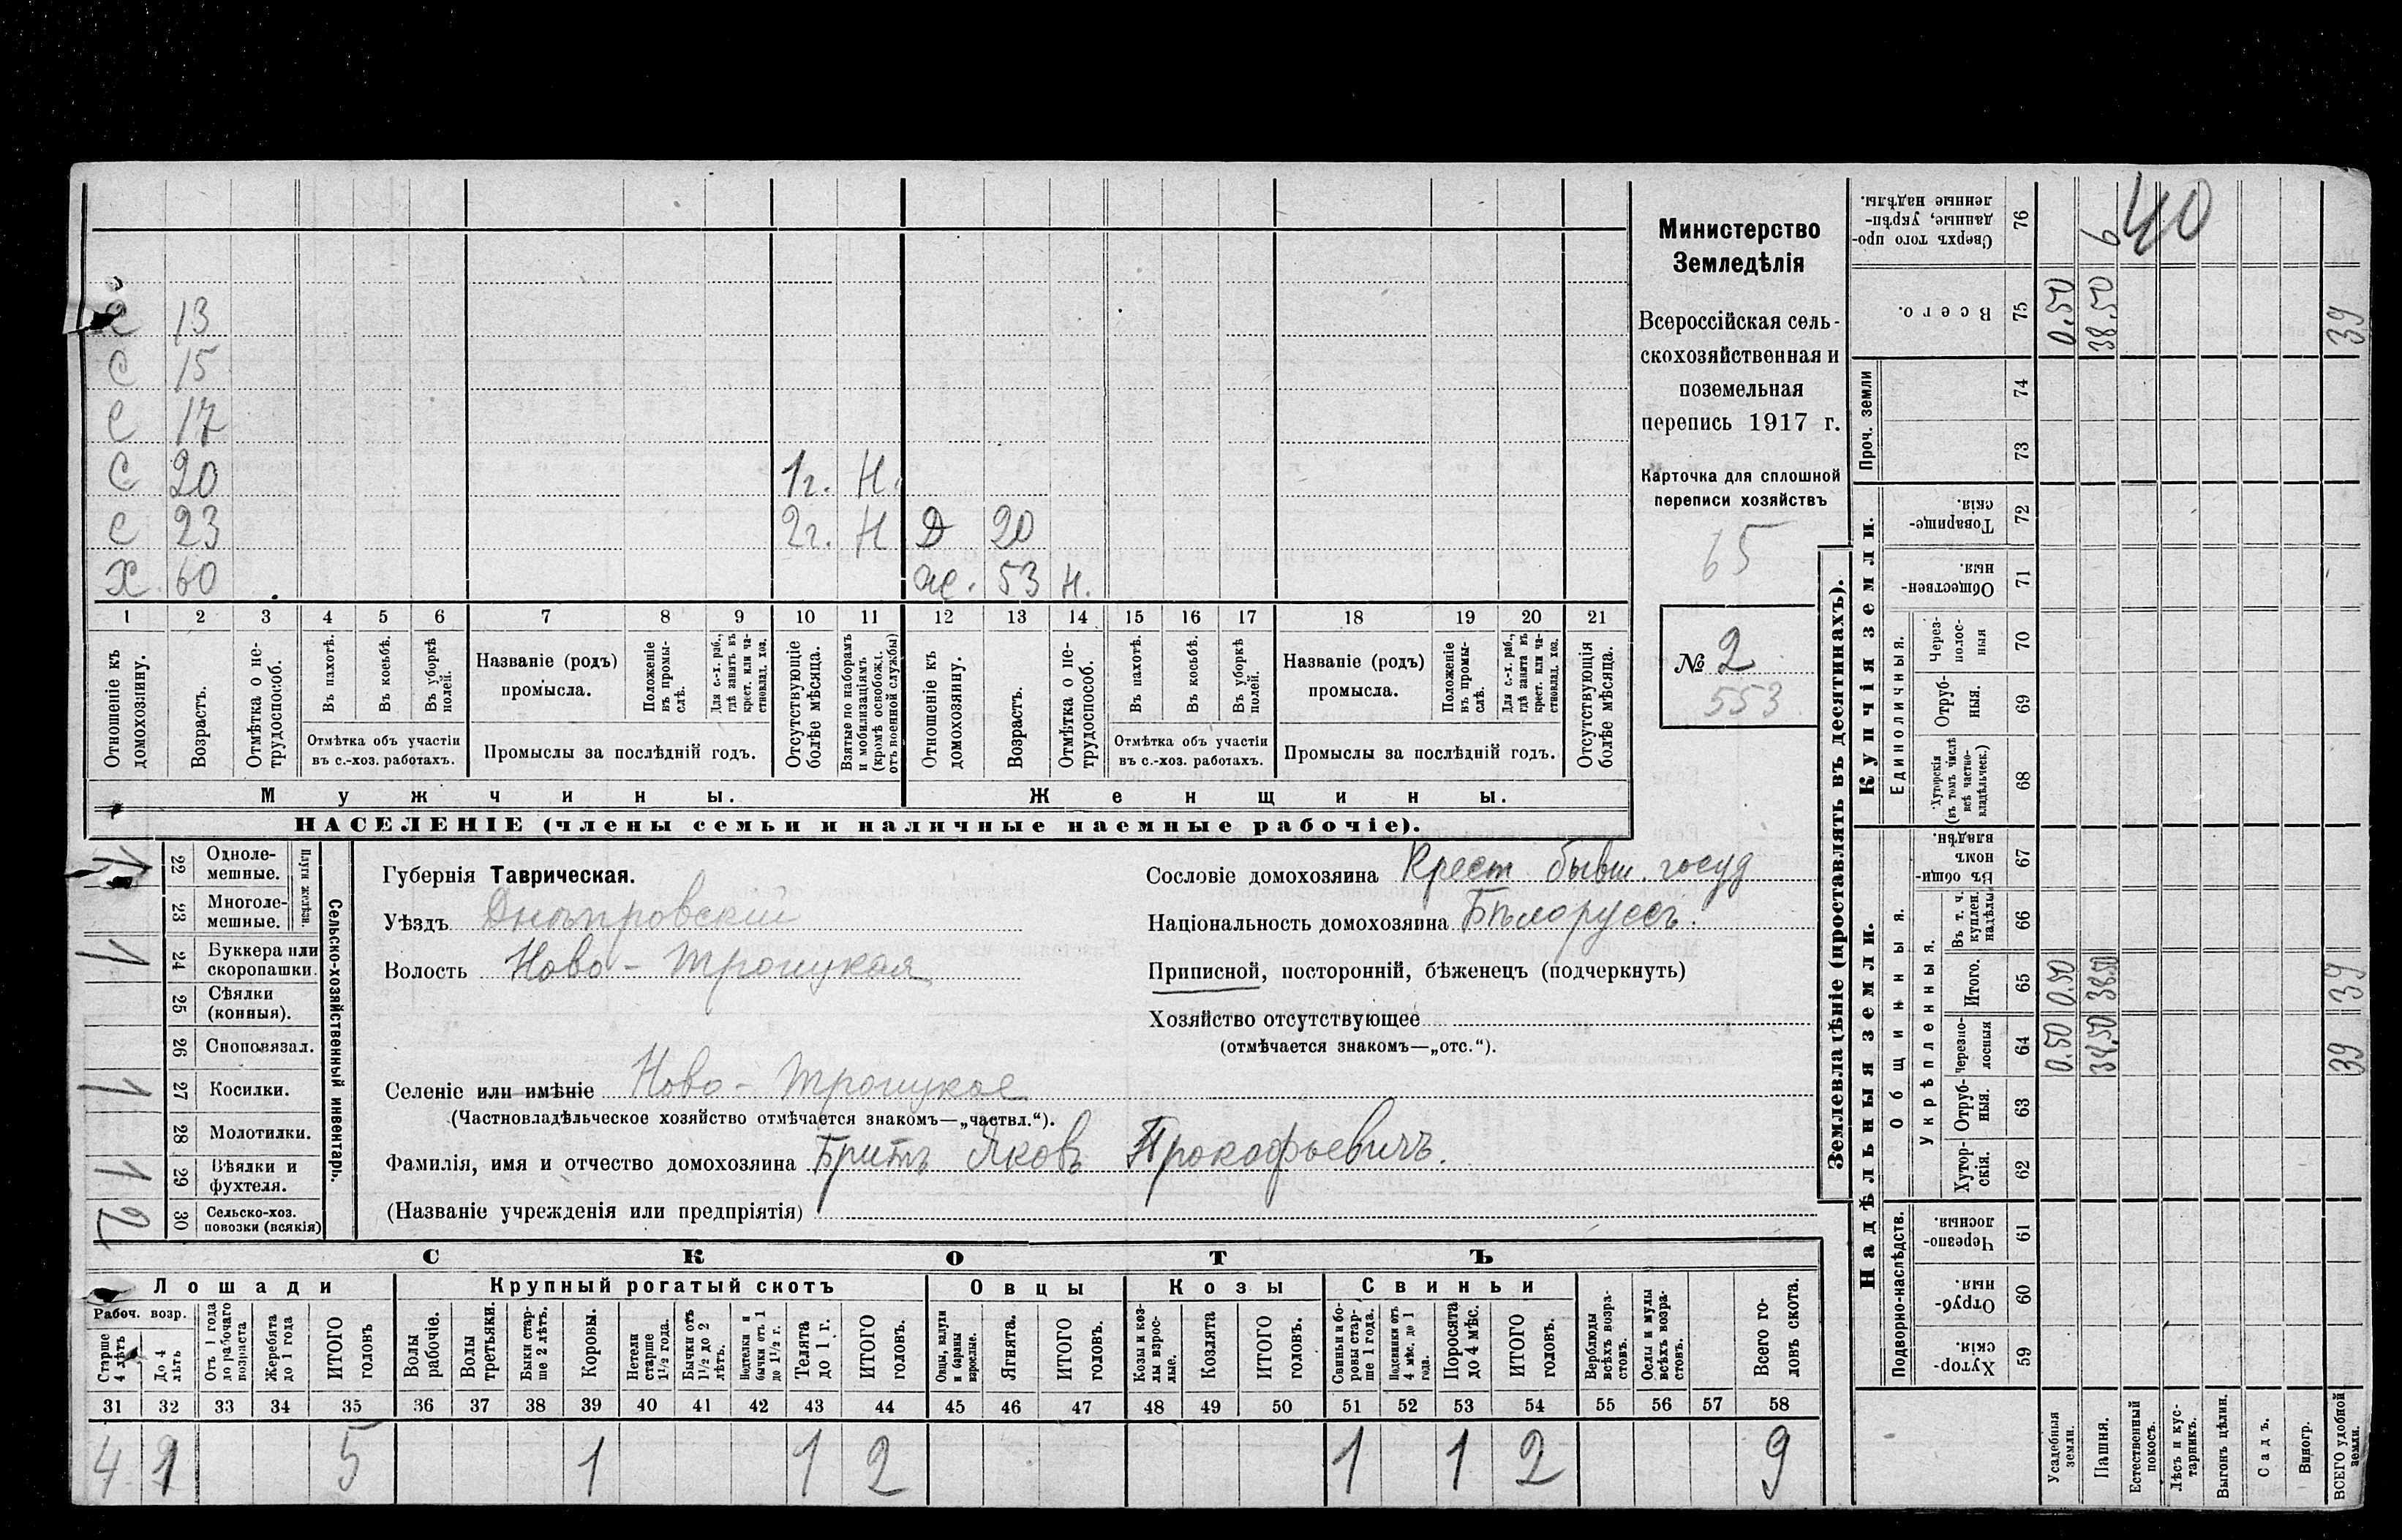 С 13
С 15
С 17
С 20 1г. Н.
С 23 2г. Н Д 20
Х. 60 Ж. 53 Н.
1 2 3 4 5 6 7 8 9 10 11 12 13 14 15 16 17 18 19 20 21
Отношеніе къ домохозяину.
Возрастъ.
Отмѣтка о нетрудоспособ.
Въ пахотѣ.
Въ косьбѣ.
Въ уборкѣ полей.
Отмѣтка объ участіи
въ с.-хоз. работахъ.
Названіе (родъ)
промысла.
Положеніе въ промыслѣ.
Для с.-х. раб., гдѣ занятъ въ крест. или частновлад. хоз.
Промыслы за послѣдній годъ.
Отсутствующіе болѣе мѣсяца.
Взятые по наборамъ и мобилизаціямъ (кромѣ освобожд. отъ военной службы)
Отношеніе къ домохозяину.
Возрастъ.
Отмѣтка о нетрудоспособ.
Въ пахотѣ.
Въ косьбѣ.
Въ уборкѣ полей.
Отмѣтка объ участіи
въ с.-хоз. работахъ.
Названіе (родъ)
промысла.
Положеніе въ промыслѣ.
Для с.-х. раб., гдѣ занята въ крест. или частновлад. хоз.
Промыслы за послѣдній годъ.
Отсутствующія болѣе мѣсяца.
Мужчины. Женщины.
НАСЕЛЕНІЕ (члены семьи и наличные наемные рабочіе).
Министерство
Земледѣлія
Всероссійская сель-
скохозяйственная и
поземельная
перепись 1917 г.
Карточка для сплошной
переписи хозяйствъ
65
№ 2
553
Сельско-хозяйственный инвентарь.
Плуги желѣзн.
22 Одноле-
мешные. 1
23 Многоле-
мешные.
24 Буккера или
скоропашки. 1
25 Сѣялки
(конныя).
26 Сноповязал.
27 Косилки. 1
28 Молотилки.
29 Вѣялки и
фухтеля. 1
30 Сельско-хоз.
повозки (всякія) 2
Губернія Таврическая.
Уѣздъ Днѣпровскій
Волость Ново-Троицкая
Селеніе или имѣніе Ново-Троицкое
(Частновладѣльческое хозяйство отмѣчается знакомъ—„частвл.“).
Фамилія, имя и отчество домохозяина Бритъ Яковъ Прокофьевичъ.
(Названіе учрежденія или предпріятія)
Сословіе домохозяина Крест бывш. госуд
Національность домохозяина Бѣлоруссъ.
Приписной, посторонній, бѣженецъ (подчеркнуть)
Хозяйство отсутствующее
(отмѣчается знакомъ—„отс.“).
СКОТЪ
Лошади Крупный рогатый скотъ Овцы Козы Свиньи
Рабоч. возр.
Старше 4 лѣтъ
До 4 лѣтъ
Отъ 1 года до рабочаго возраста
Жеребята до 1 года
ИТОГО головъ
Волы рабочіе.
Волы третьяки.
Быки старше 2 лѣтъ.
Коровы.
Нетели старше 1½ года.
Бычки отъ 1½ до 2 лѣтъ.
Подтелки и бычки отъ 1 до 1½ г.
Телята до 1 г.
ИТОГО головъ.
Овцы, валухи и бараны взрослые.
Ягнята.
ИТОГО головъ.
Козы и козлы взрослые.
Козлята
ИТОГО головъ.
Свиньи и боровы старше 1 года.
Подсвинки отъ 4 мѣс. до 1 года.
Поросята до 4 мѣс.
ИТОГО головъ.
Верблюды всѣхъ возрастовъ.
Ослы и мулы всѣхъ возрастовъ.
Всего головъ скота.
31 32 33 34 35 36 37 38 39 40 41 42 43 44 45 46 47 48 49 50 51 52 53 54 55 56 57 58
4 1 5 1 1 2 1 1 2 9
Землевладѣніе (проставлять въ десятинахъ).
Надѣльныя земли. Купчія земли. Проч. земли
Подворно-наслѣдств.
Общинныя.
Укрѣпленныя.
Единоличныя.
Хуторскія. 59
Отрубныя. 60
Черезполосныя. 61
Хуторскія. 62
Отрубныя. 63
Черезполосныя 64 0.50 38.50 39
Итого. 65 0.50 38.50 39
Въ т. ч. куплен. надѣлы 66
Въ общинномъ владѣн. 67
Хуторскія (въ томъ числѣ всѣ частновладѣльческ.) 68
Отрубныя. 69
Черезполосныя 70
Общественныя. 71
Товарищескія. 72
73
74
Всего. 75 0.50 38.50 39
Сверхъ того проданные, укрѣпленные надѣлы. 76 6
40
Усадебныя земли.
Пашня.
Естественный покосъ.
Лѣсъ и кустарникъ.
Выгонъ цѣлин.
Садъ.
Виногр.
ВСЕГО удобной земли.